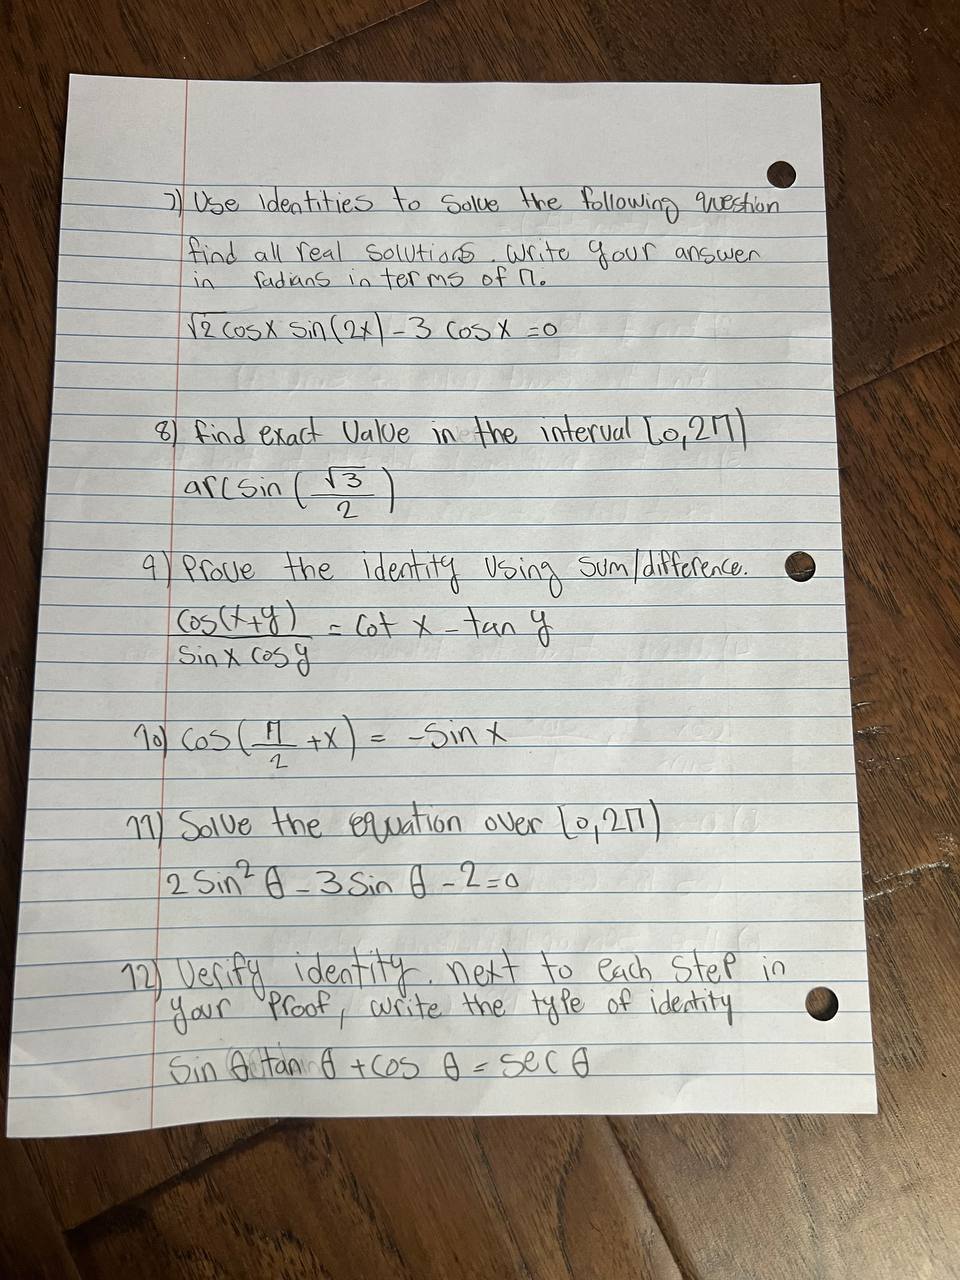 7) Use identities to solve the following question
find all real solutions. Write your answer
in radians in terms of π.
√2 cosx sin(2x) - 3 cosx = 0
8) find exact value in the interval [0,2π)
arcsin (√3/2)
9) Prove the identity using sum/difference.
cos(x+y)/sinx cosy = cot x - tan y
10) cos(π/2 + x) = -sin x
11) Solve the equation over [0,2π)
2 sin² θ - 3 sin θ - 2 = 0
12) Verify identity. next to each step in
your proof, write the type of identity
sin θ tan θ + cos θ = sec θ